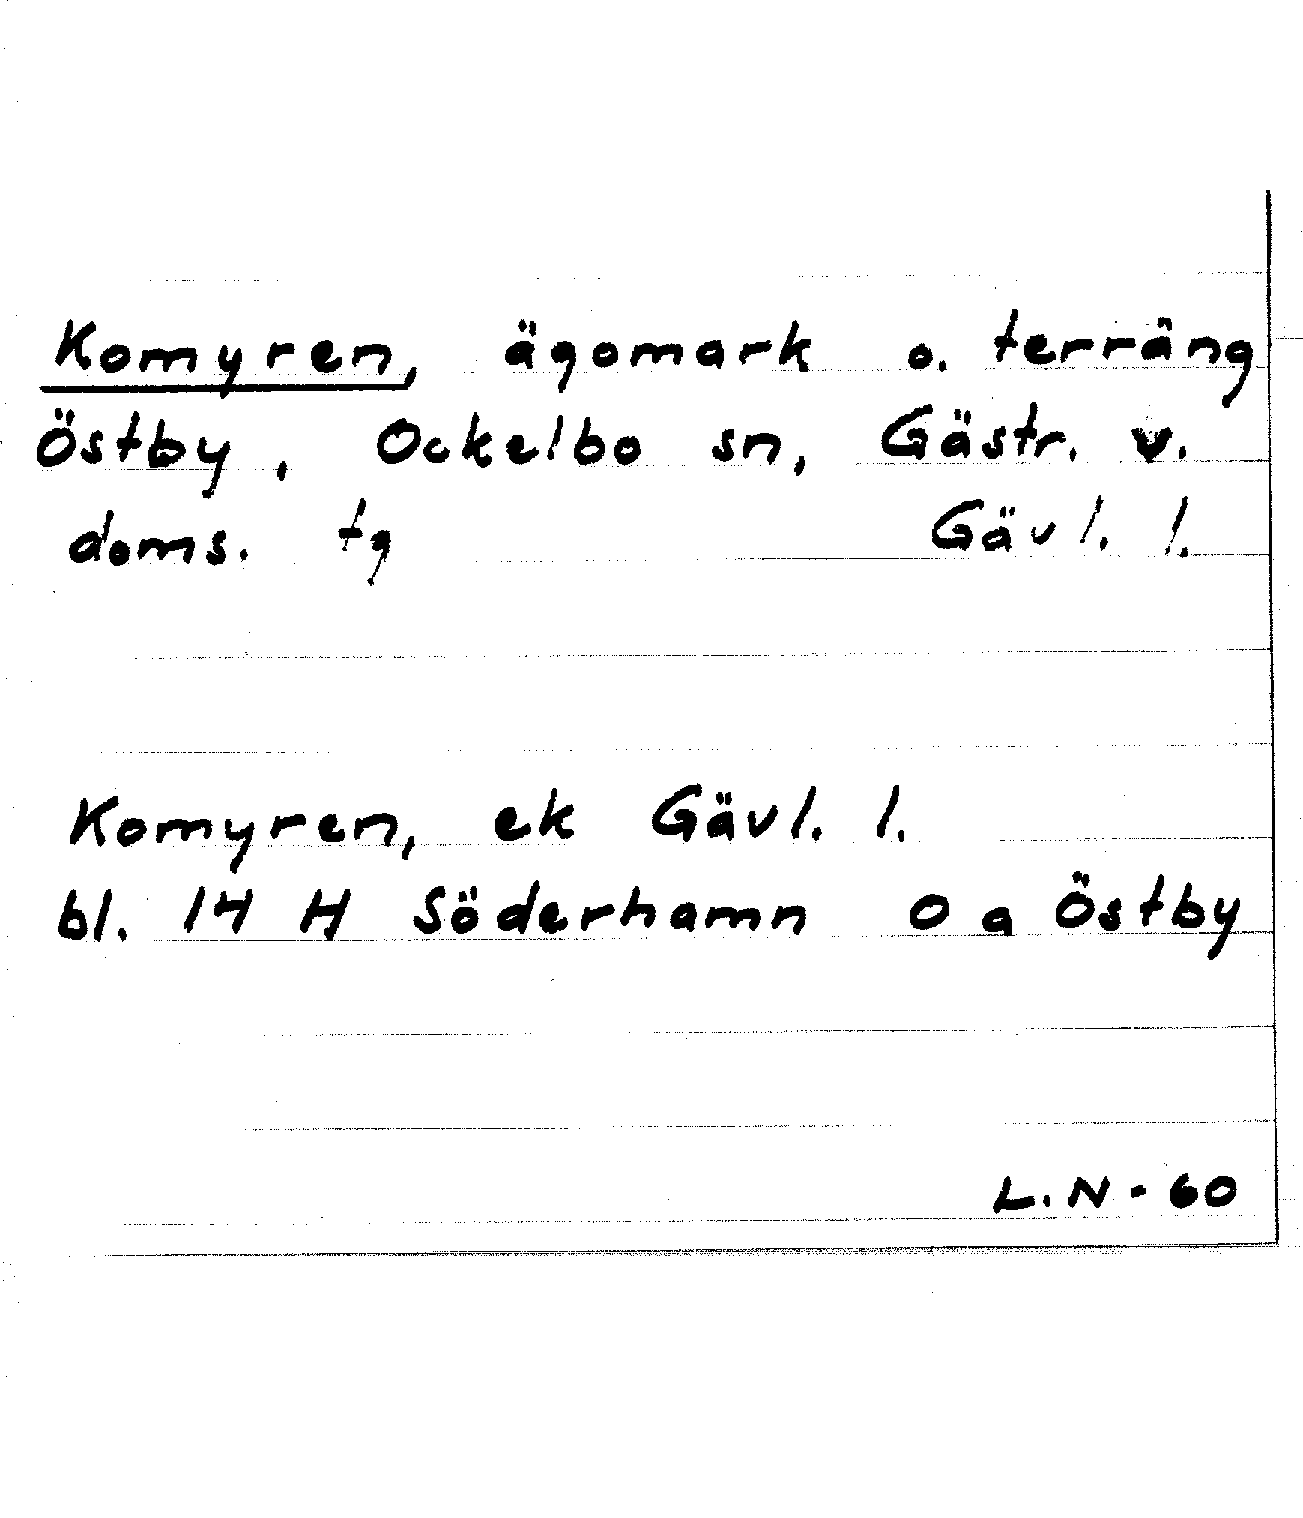 Komyren, ägomark o. terräng
Östby, Ockelbo sn, Gästr. v.
doms. tg Gävl. l.
Komyren, ek Gävl. l.
bl. 14 H Söderhamn O a Östby
L.N-60